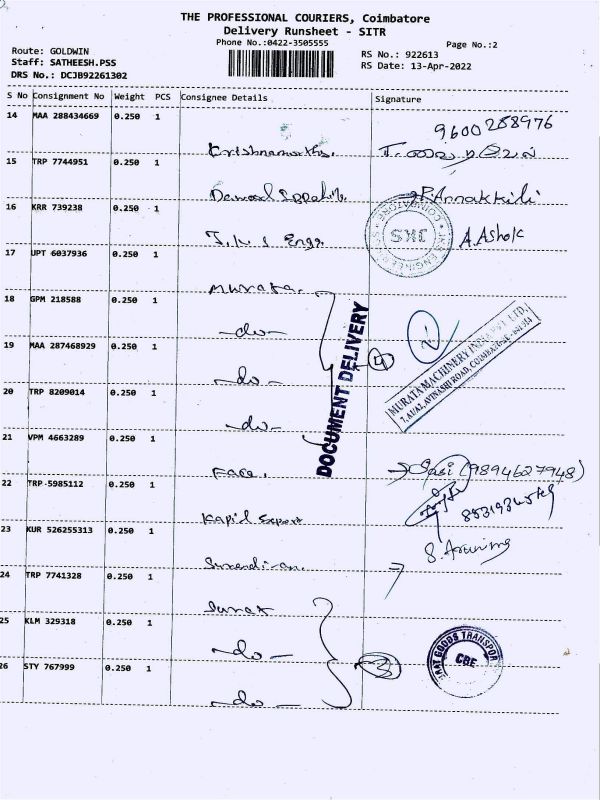 THE PROFESSIONAL COURIERS, Coimbatore
Delivery Runsheet - SITR
Phone No.:0422-3505555
Page No.:2
Route: GOLDWIN
Staff: SATHEESH.PSS
DRS No.: DCJB92261302
RS No.: 922613
RS Date: 13-Apr-2022
S No Consignment No Weight PCS Consignee Details Signature
14 MAA 288434669 0.250 1
9600288976
15 TRP 7744951 0.250 1
P. Annakkili
16 KRR 739238 0.250 1
J.K.S Engg
JKS
COIMBATORE
A. Ashok
17 UPT 6037936 0.250 1
Murata.
18 GPM 218588 0.250 1
-do-
19 MAA 287468929 0.250 1
-do-
20 TRP 8209014 0.250 1
-do-
DOCUMENT DELIVERY
4
MURATA MACHINERY INDIA PVT. LTD.
AVINASHI ROAD, COIMBATORE
21 VPM 4663289 0.250 1
Face.
Sasi (9894627948)
22 TRP 5985112 0.250 1
Kapil Export
23 KUR 526255313 0.250 1
24 TRP 7741328 0.250 1
Surat
25 KLM 329318 0.250 1
-do-
26 STY 767999 0.250 1
-do-
3
GOODS TRANSPOR
CBE